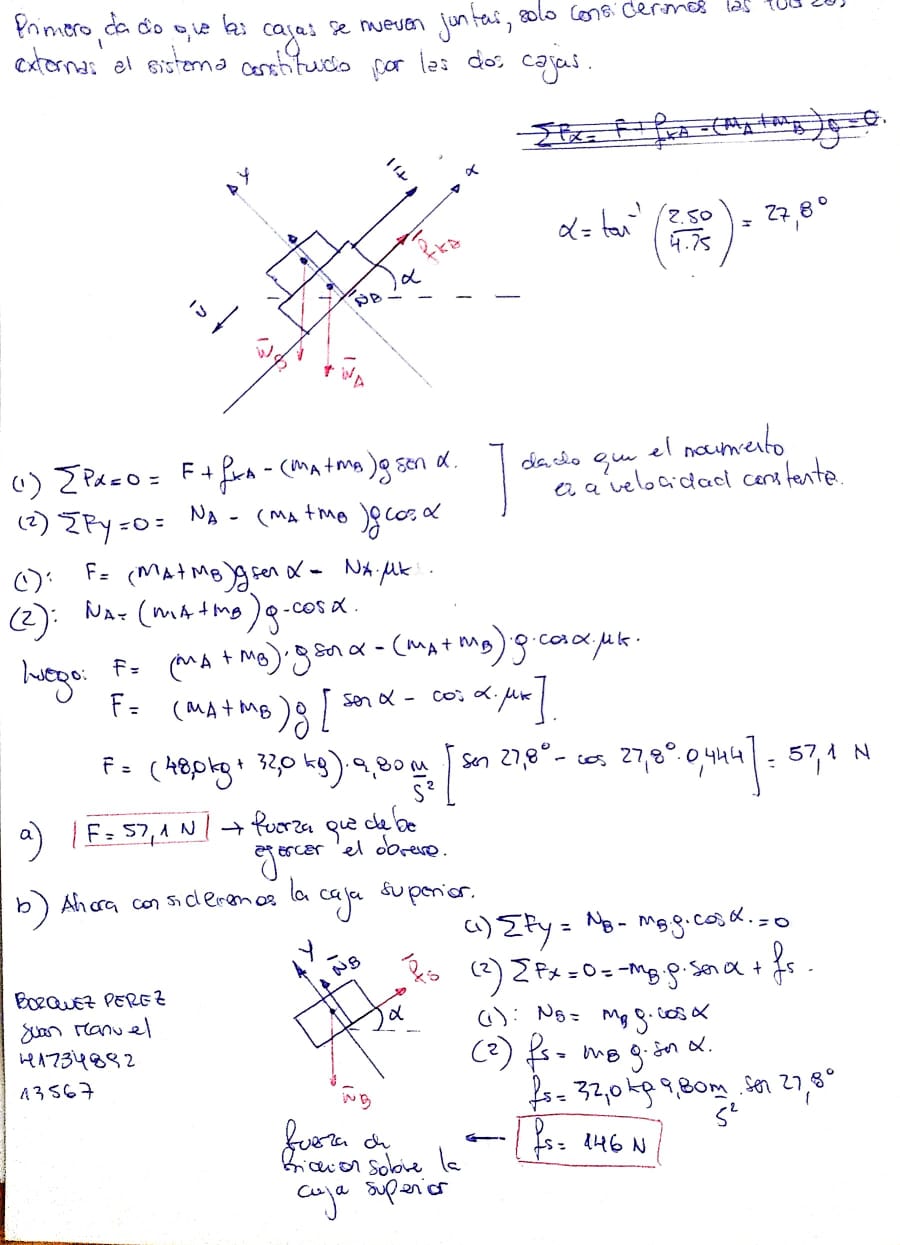 Primero, dado que las cajas se mueven juntas, solo consideremos las fuerzas,
externas el sistema constituido por las dos cajas.
ΣFx = F + fkA - (mA + mB)g = 0.
α = tan⁻¹ (2.50/4.75) = 27,8°
y
F
x
fkA
α
NB
v
WB
WA
(1) ΣFx = 0 = F + fkA - (mA + mB)g sen α.
(2) ΣFy = 0 = NA - (mA + mB)g cos α
dado que el movimiento
es a velocidad constante.
(1): F = (mA + mB)g sen α - NA·μk.
(2): NA = (mA + mB)g·cos α.
luego: F = (mA + mB)·g sen α - (mA + mB)·g·cos α·μk.
F = (mA + mB)g [sen α - cos α·μk].
F = (48,0 kg + 32,0 kg)·9,80 m/s² [sen 27,8° - cos 27,8°·0,444] = 57,1 N
a) F = 57,1 N → fuerza que debe
ejercer el obrero.
b) Ahora consideremos la caja superior.
y
NB
fs
α
WB
(1) ΣFy = NB - mB·g·cos α. = 0
(2) ΣFx = 0 = -mB·g·sen α + fs.
(1): NB = mB g·cos α
(2) fs = mB g·sen α.
fs = 32,0 kg 9,80 m/s². sen 27,8°
fs = 146 N
fuerza de
fricción sobre la
caja superior
BORQUEZ PEREZ
Juan Manuel
41734892
13567